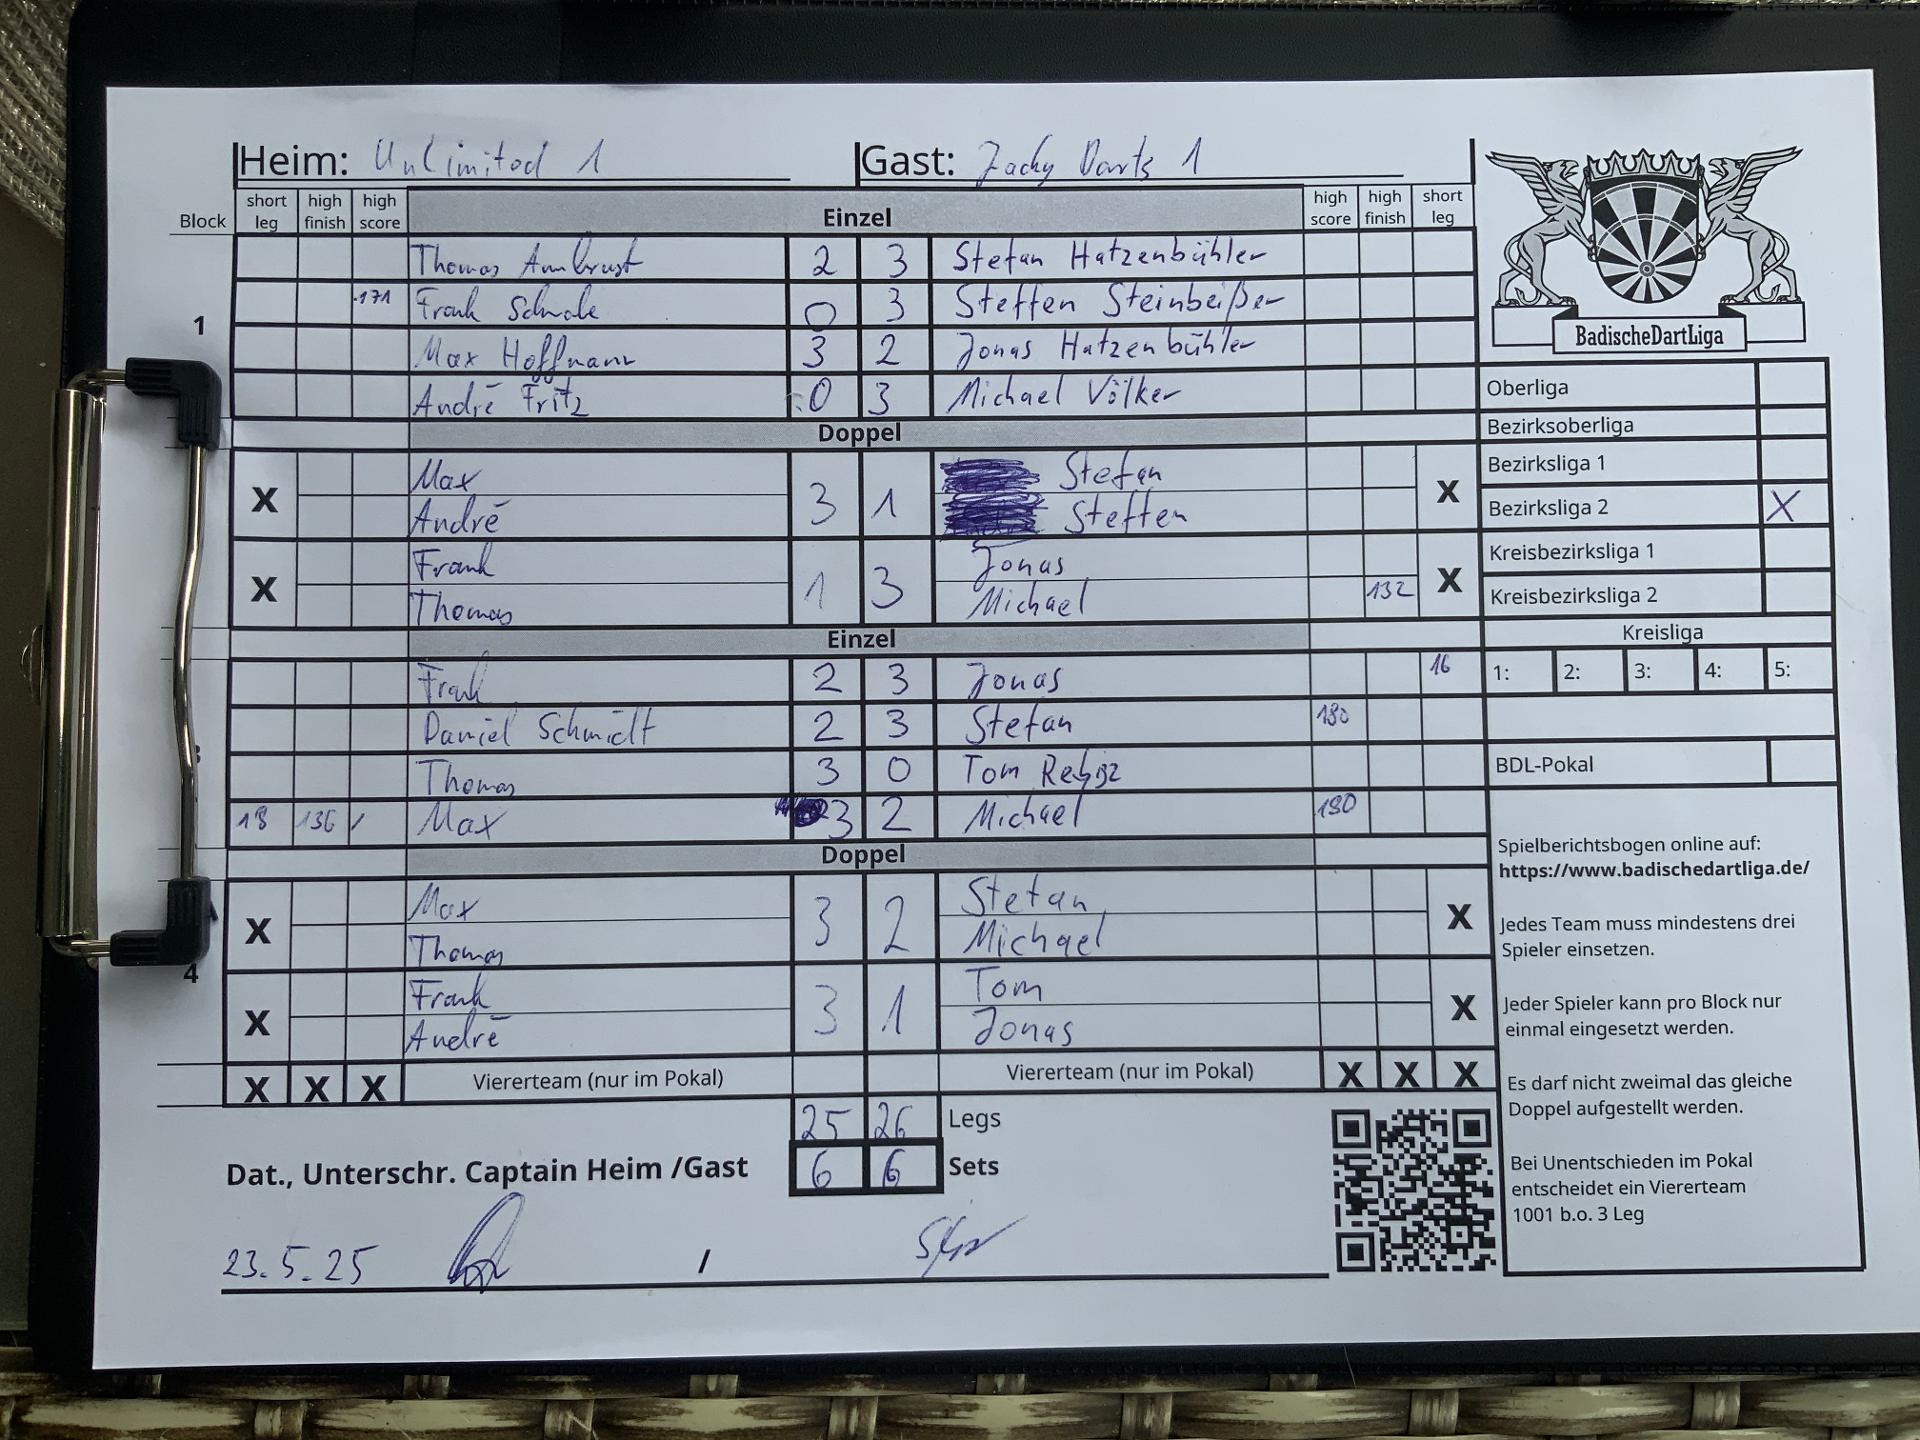 Heim: Unlimited 1 Gast: Zachy Darts 1
Block short leg high finish high score Einzel high score high finish short leg
Thomas Armbrust 2 3 Stefan Hatzenbühler
1 171 Frank Schwale 0 3 Steffen Steinbeißer
Max Hoffmann 3 2 Jonas Hatzenbühler
André Fritz 0 3 Michael Völker
Doppel
X Max 3 1 Stefan X
André Steffen
X Frank 1 3 Jonas X
Thomas Michael 132
Einzel
Frank 2 3 Jonas 16
Daniel Schmidt 2 3 Stefan 180
Thomas 3 0 Tom
18 136 / Max 3 2 Michael 180
Doppel
X Max 3 2 Stefan X
Thomas Michael
4
X Frank 3 1 Tom X
André Jonas
X X X Viererteam (nur im Pokal) Viererteam (nur im Pokal) X X X
25 26 Legs
Dat., Unterschr. Captain Heim /Gast 6 6 Sets
23.5.25 /
BadischeDartLiga
Oberliga
Bezirksoberliga
Bezirksliga 1
Bezirksliga 2 X
Kreisbezirksliga 1
Kreisbezirksliga 2
Kreisliga
1: 2: 3: 4: 5:
BDL-Pokal
Spielberichtsbogen online auf:
https://www.badischedartliga.de/
Jedes Team muss mindestens drei
Spieler einsetzen.
Jeder Spieler kann pro Block nur
einmal eingesetzt werden.
Es darf nicht zweimal das gleiche
Doppel aufgestellt werden.
Bei Unentschieden im Pokal
entscheidet ein Viererteam
1001 b.o. 3 Leg